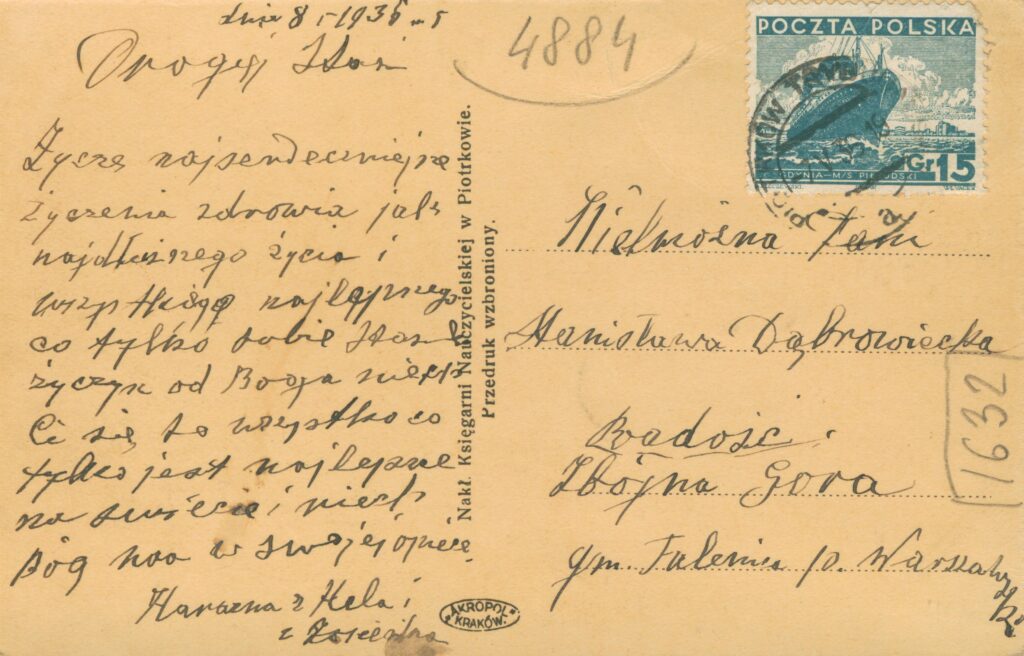 dnia 8 V 1936
4884
Drogiej Stasi
Życzę najserdeczniejsze
życzenia zdrowia jak
najdłuższego życia i
wszystkiego najlepszego
co tylko sobie
życzysz od Boga niech
Ci się to wszystko co
tylko jest najlepsze
na świecie i niech
Bóg ma w swojej opiece
z Hela i
z
Nakł. Księgarni Nauczycielskiej w Piotrkowie.
Przedruk wzbroniony.
AKROPOL
KRAKÓW.
POCZTA POLSKA
GDYNIA—M/S PIŁSUDSKI
GR 15
Wielmożna Pani
Stanisława Dąbrowiecka
Radość
Zbójna Gora
gm. Falenica p. Warszawą
1632